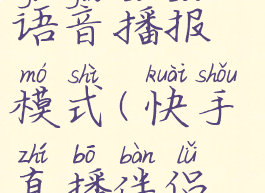 语音播报
mó shì kuài shǒu
模式(快手
zhí bō bàn lǚ
直播伴侣